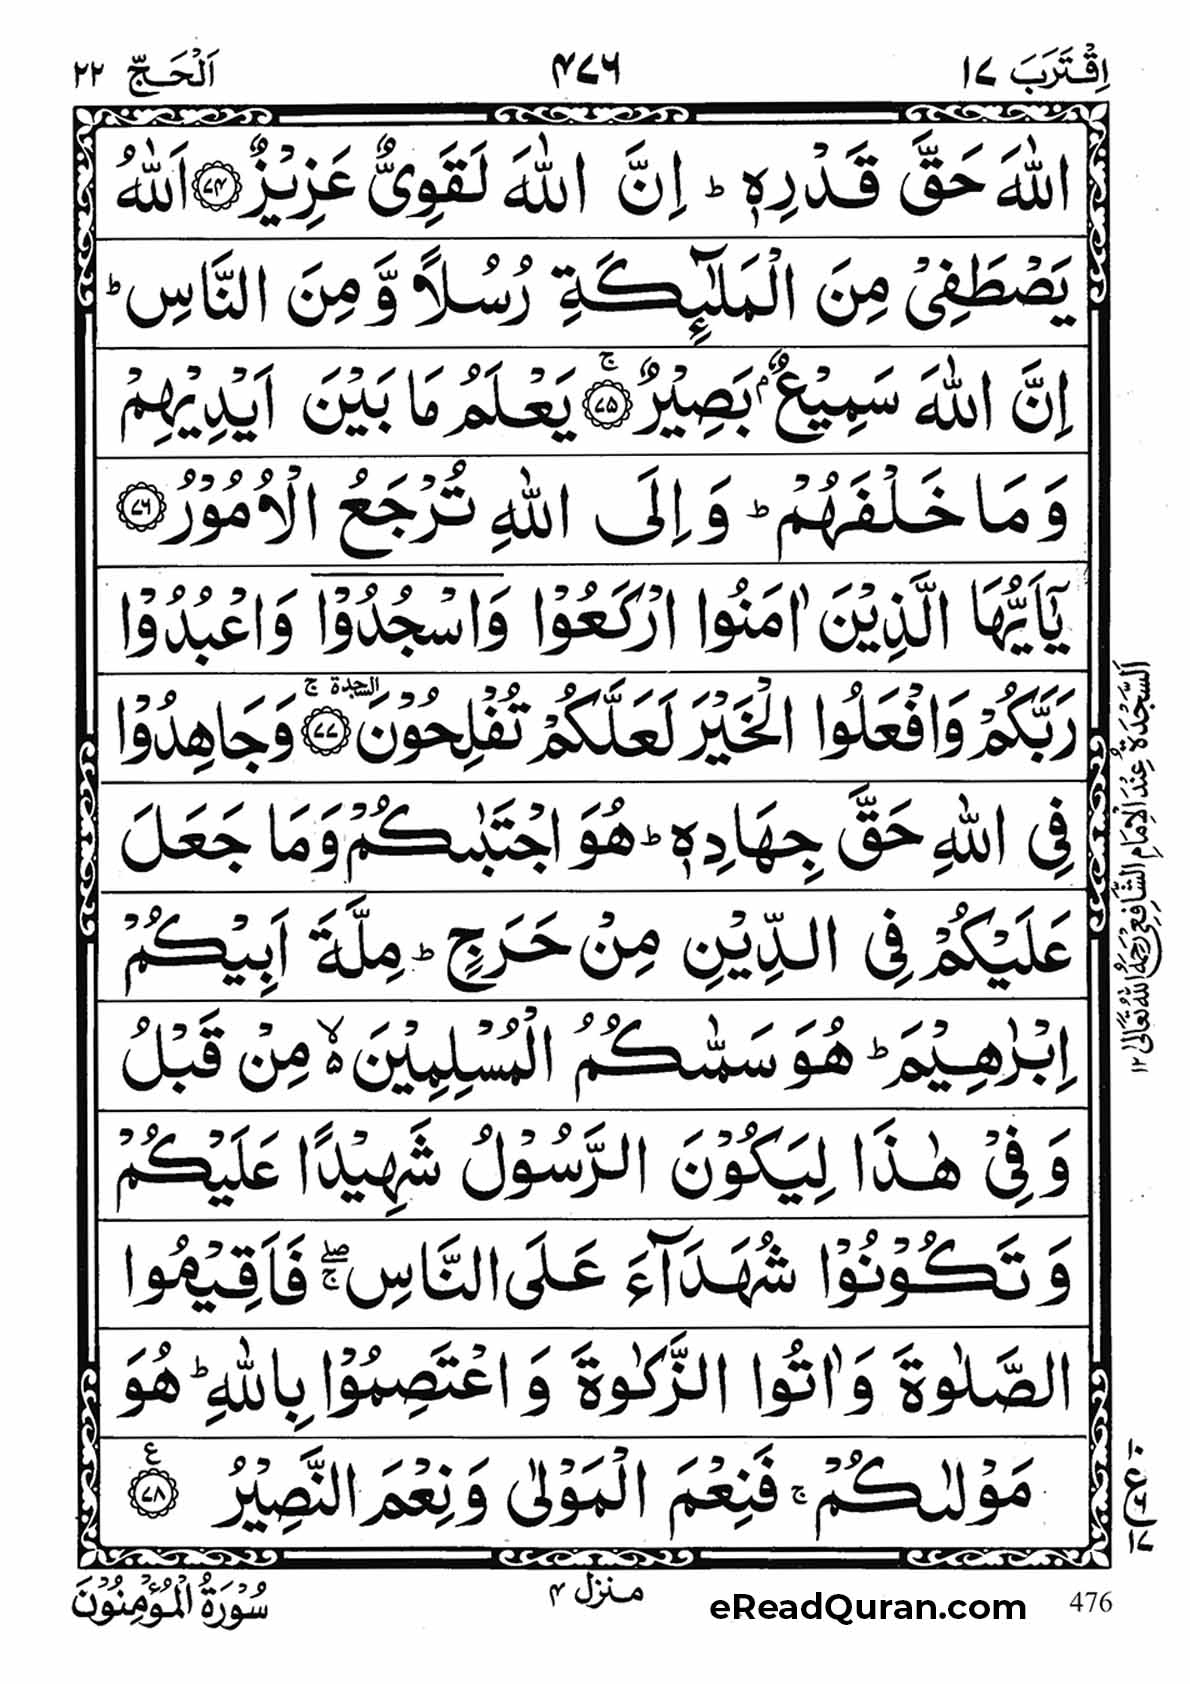 اِقْتَرَبَ ١٧
٤٧٦
اَلْحَجّ ٢٢
اللّٰهَ حَقَّ قَدْرِهٖ ؕ اِنَّ اللّٰهَ لَقَوِىٌّ عَزِيْزٌ ﴿٧٤﴾ اَللّٰهُ
يَصْطَفِىْ مِنَ الْمَلٰٓئِكَةِ رُسُلًا وَّ مِنَ النَّاسِ ؕ
اِنَّ اللّٰهَ سَمِيْعٌۢ بَصِيْرٌ ۚ﴿٧٥﴾ يَعْلَمُ مَا بَيْنَ اَيْدِيْهِمْ
وَ مَا خَلْفَهُمْ ؕ وَ اِلَى اللّٰهِ تُرْجَعُ الْاُمُوْرُ ﴿٧٦﴾
يٰۤاَيُّهَا الَّذِيْنَ اٰمَنُوا ارْكَعُوْا وَ اسْجُدُوْا وَ اعْبُدُوْا
رَبَّكُمْ وَ افْعَلُوا الْخَيْرَ لَعَلَّكُمْ تُفْلِحُوْنَ السجدة ۚ﴿٧٧﴾ وَ جَاهِدُوْا
فِى اللّٰهِ حَقَّ جِهَادِهٖ ؕ هُوَ اجْتَبٰىكُمْ وَ مَا جَعَلَ
عَلَيْكُمْ فِى الدِّيْنِ مِنْ حَرَجٍ ؕ مِلَّةَ اَبِيْكُمْ
اِبْرٰهِيْمَ ؕ هُوَ سَمّٰىكُمُ الْمُسْلِمِيْنَ ۙ۬ مِنْ قَبْلُ
وَ فِىْ هٰذَا لِيَكُوْنَ الرَّسُوْلُ شَهِيْدًا عَلَيْكُمْ
وَ تَكُوْنُوْا شُهَدَآءَ عَلَى النَّاسِ ۖۚ فَاَقِيْمُوا
الصَّلٰوةَ وَ اٰتُوا الزَّكٰوةَ وَ اعْتَصِمُوْا بِاللّٰهِ ؕ هُوَ
مَوْلٰىكُمْ ۚ فَنِعْمَ الْمَوْلٰى وَ نِعْمَ النَّصِيْرُ ﴿٧٨﴾ ع
اَلسَّجْدَةُ عِنْدَ الْاِمَامِ الشَّافِعِيِّ رَحِمَهُ اللّٰهُ تَعَالٰى ١٢
ع ١٧
سُوْرَةُ الْمُؤْمِنُوْنَ
منزل ٤
eReadQuran.com
476